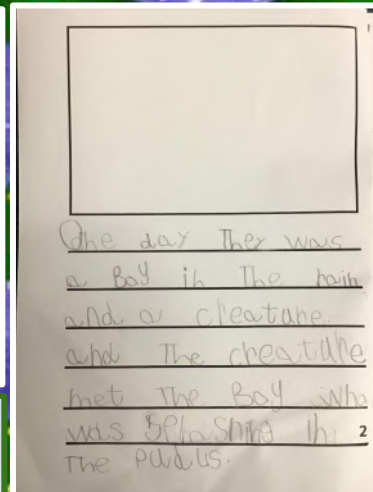 One day They was
a Boy in The rain
and a creature.
and The creature
met The Boy who
was Splashing in 2
The pudus.